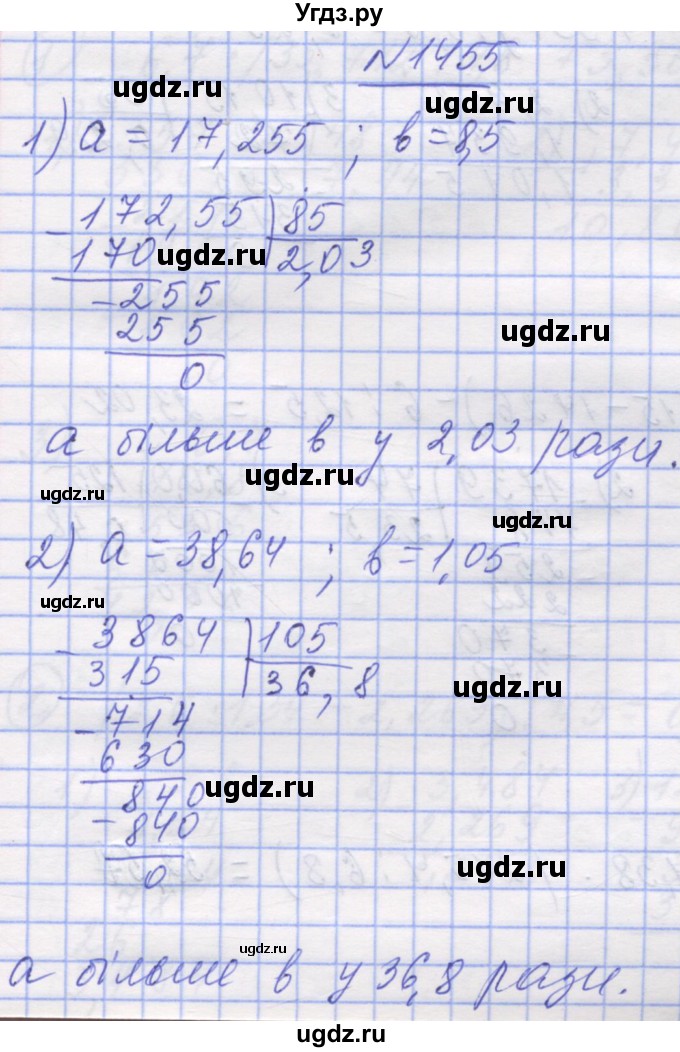 Угдз.ру
N1455
ugdz.ru
ugdz.ru
1) a = 17,255 ; в = 8,5
- 172,55 | 85
170 2,03
ugdz.ru
- 255
255
ugdz.ru
0
а більше в у 2,03 рази.
ugdz.ru
ugdz.ru
ugdz.ru
2) a = 38,64 ; в = 1,05
ugdz.ru
- 3864 | 105
315 36,8
ugdz.ru
- 714
630
ugdz.ru
840
- 840
0
ugdz.ru
ugdz.ru
а більше в у 36,8 рази.
ugdz.ru